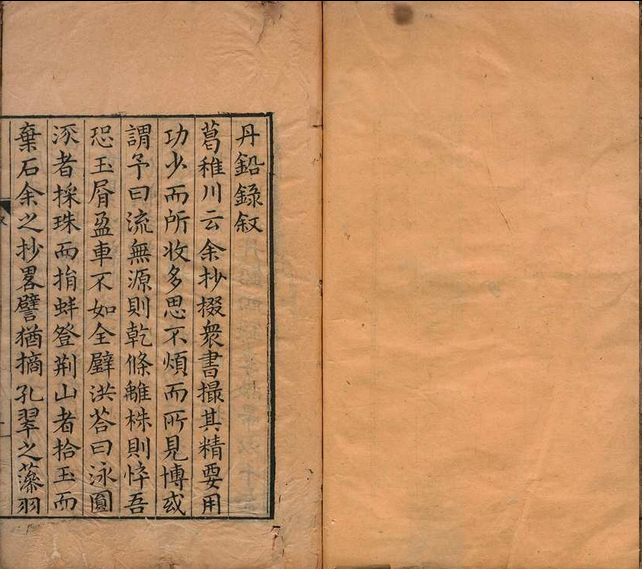 丹鉛錄叙
葛稚川云余抄掇衆書撮其精要用
功少而所收多思不煩而所見博或
謂予曰流無源則乾條離株則悴吾
恐玉屑盈車不如全璧洪荅曰泳圓
流者採珠而捐蚌登荆山者拾玉而
棄石余之抄畧譬猶摘孔翠之藻羽